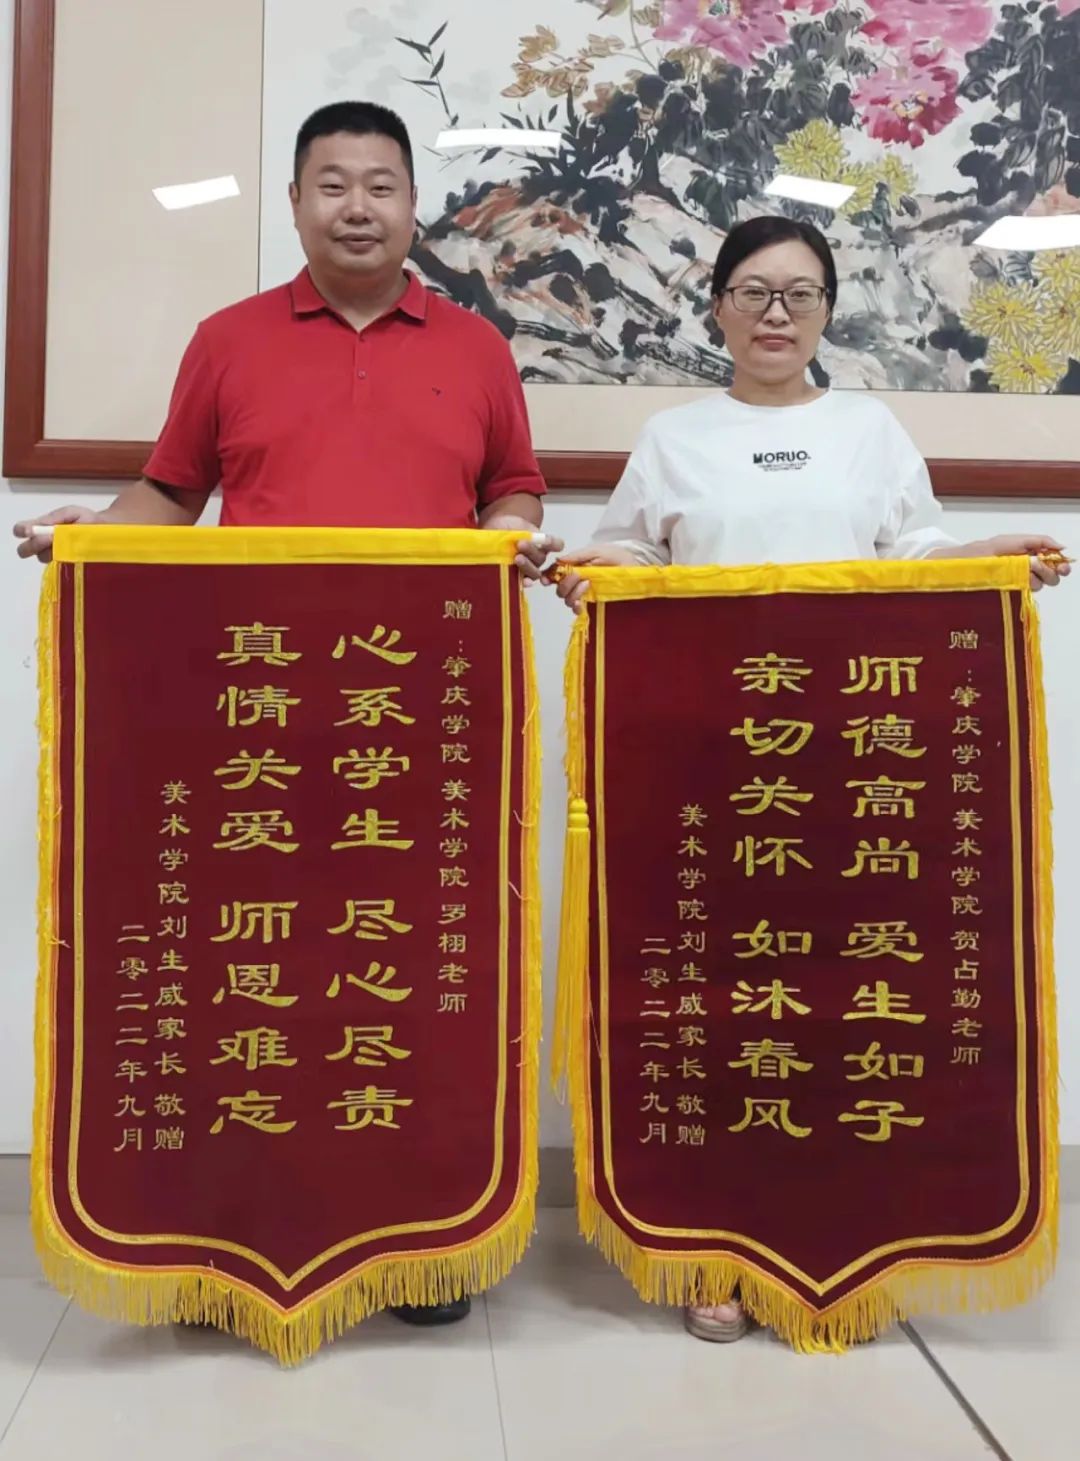 赠：肇庆学院 美术学院罗栩老师
心系学生 尽心尽责
真情关爱 师恩难忘
美术学院刘生威家长敬赠
二零二二年九月
MORUO.
赠：肇庆学院 美术学院 贺占勤老师
师德高尚 爱生如子
亲切关怀 如沐春风
美术学院刘生威家长敬赠
二零二二年九月